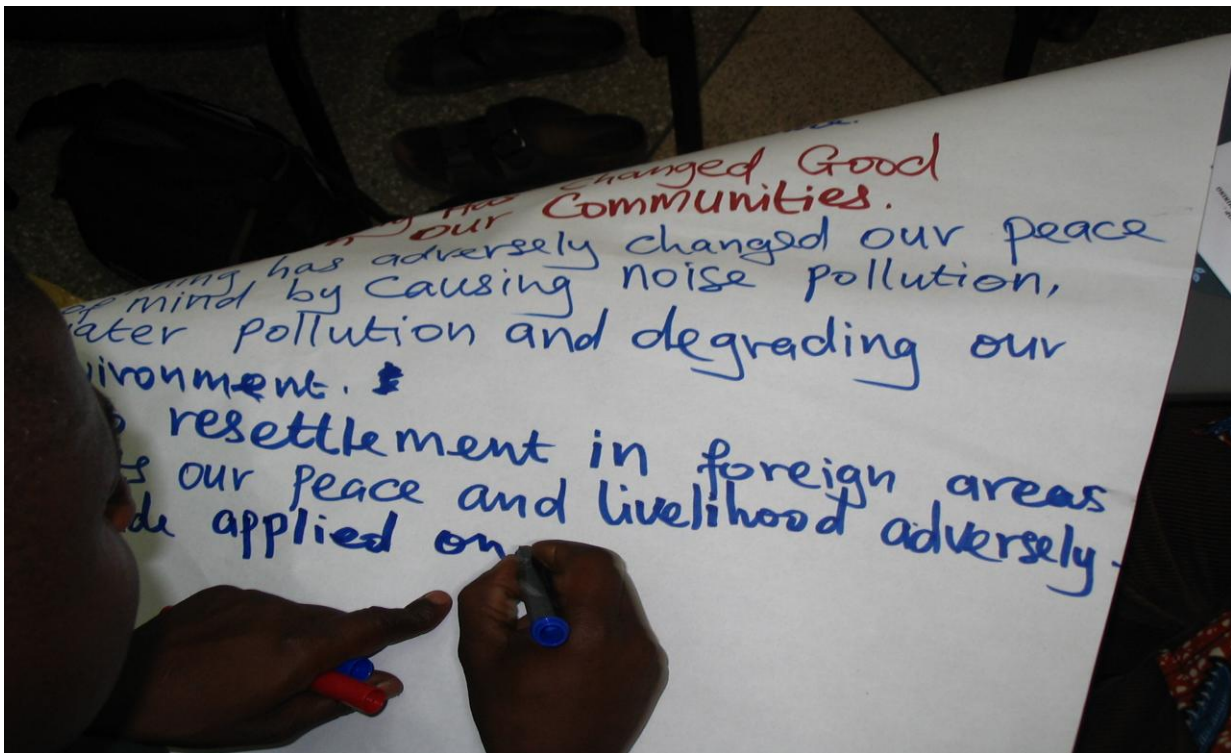 has changed Good
our Communities.
has adversely changed our peace
of mind by causing noise pollution,
pollution and degrading our
resettlement in foreign areas
our peace and livelihood adversely.
applied on